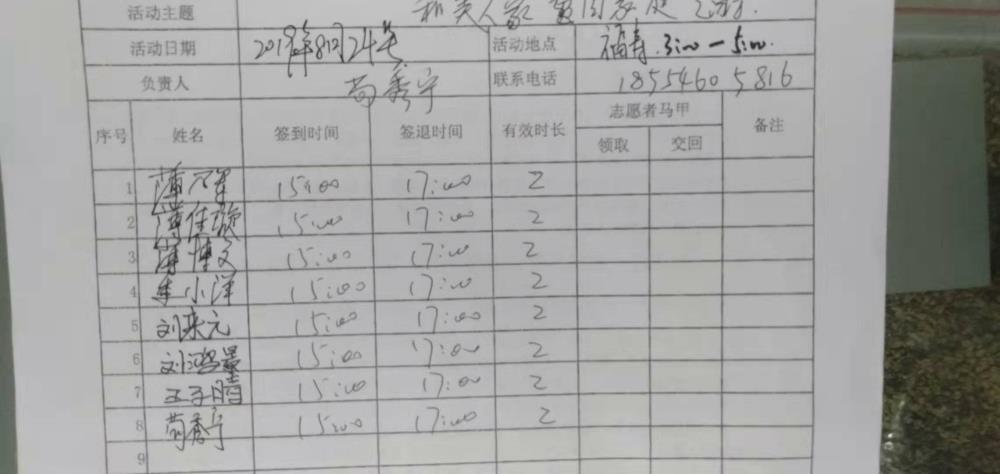 活动主题 和美人家
活动日期 2019年8月24号 活动地点 福寿 3:00-5:00
负责人 荀秀宇 联系电话 18554605816
序号 姓名 签到时间 签退时间 有效时长 志愿者马甲 备注
领取 交回
1 15:00 17:00 2
2 15:00 17:00 2
3 15:00 17:00 2
4 朱小洋 15:00 17:00 2
5 刘来元 15:00 17:00 2
6 15:00 17:00 2
7 王子晴 15:00 17:00 2
8 荀秀宇 15:00 17:00 2
9